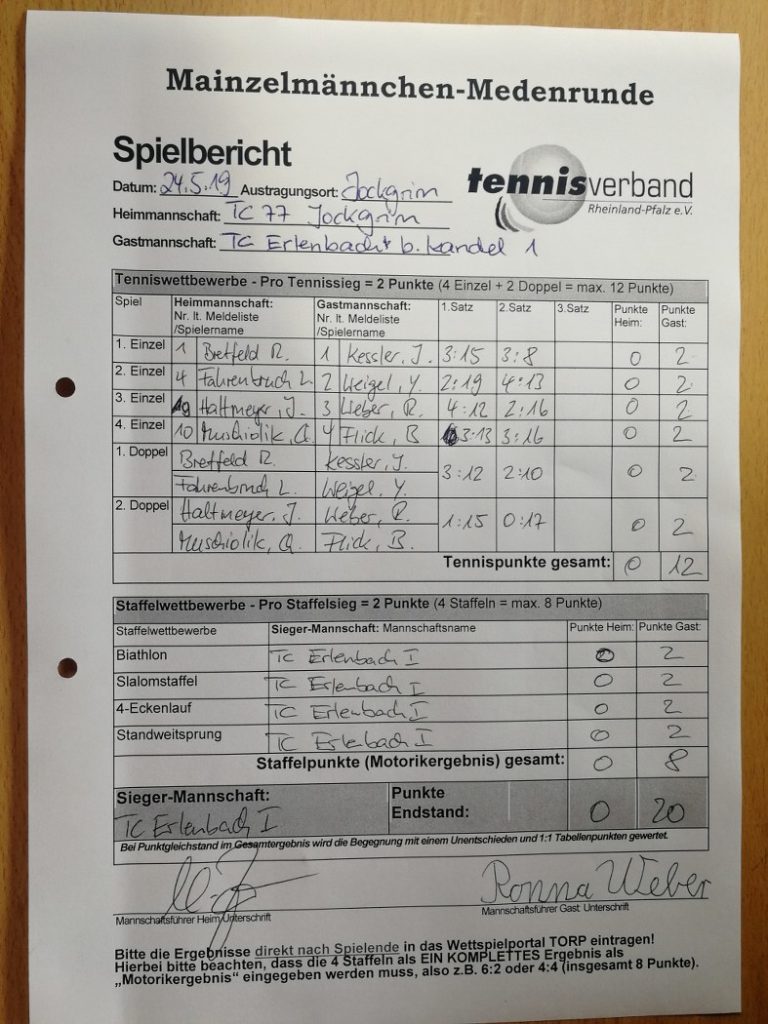 Mainzelmännchen-Medenrunde
Spielbericht
tennisverband
Rheinland-Pfalz e.V.
Datum: 24.5.19 Austragungsort: Jockgrim
Heimmannschaft: TC 77 Jockgrim
Gastmannschaft: TC Erlenbach b. Kandel 1
Tenniswettbewerbe - Pro Tennissieg = 2 Punkte (4 Einzel + 2 Doppel = max. 12 Punkte)
Spiel Heimmannschaft: Nr. lt. Meldeliste /Spielername Gastmannschaft: Nr. lt. Meldeliste /Spielername 1.Satz 2.Satz 3.Satz Punkte Heim: Punkte Gast:
1. Einzel 1 Bretfeld R. 1 Kessler, J. 3:15 3:8 0 2
2. Einzel 4 Fahrenbruch L. 2 Weigel, Y. 2:19 4:13 0 2
3. Einzel 9 Haltmeyer, J. 3 Weber, R. 4:12 2:16 0 2
4. Einzel 10 Muschiolik, Q. 4 Flick, B 3:13 3:16 0 2
1. Doppel Bretfeld R. Kessler, J. 3:12 2:10 0 2
Fahrenbruch L. Weigel, Y.
2. Doppel Haltmeyer, J. Weber, R. 1:15 0:17 0 2
Muschiolik, Q. Flick, B.
Tennispunkte gesamt: 0 12
Staffelwettbewerbe - Pro Staffelsieg = 2 Punkte (4 Staffeln = max. 8 Punkte)
Staffelwettbewerbe Sieger-Mannschaft: Mannschaftsname Punkte Heim: Punkte Gast:
Biathlon TC Erlenbach I 0 2
Slalomstaffel TC Erlenbach I 0 2
4-Eckenlauf TC Erlenbach I 0 2
Standweitsprung TC Erlebach I 0 2
Staffelpunkte (Motorikergebnis) gesamt: 0 8
Sieger-Mannschaft: Punkte
TC Erlenbach I Endstand: 0 20
Bei Punktgleichstand im Gesamtergebnis wird die Begegnung mit einem Unentschieden und 1:1 Tabellenpunkten gewertet.
Ronna Weber
Mannschaftsführer Heim Unterschrift Mannschaftsführer Gast Unterschrift
Bitte die Ergebnisse direkt nach Spielende in das Wettspielportal TORP eintragen!
Hierbei bitte beachten, dass die 4 Staffeln als EIN KOMPLETTES Ergebnis als
„Motorikergebnis" eingegeben werden muss, also z.B. 6:2 oder 4:4 (insgesamt 8 Punkte).